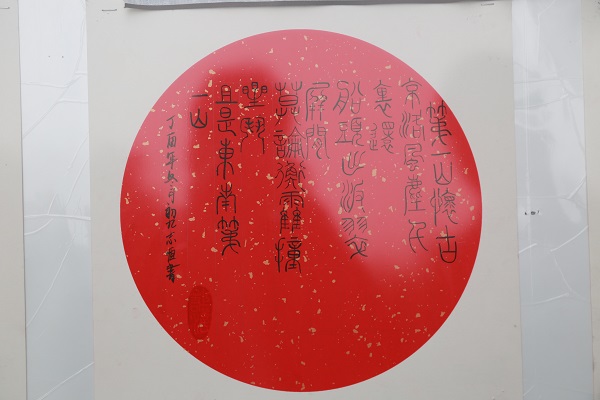 第一山懷古
京洛風塵千
裏還
船頭出汳翠
屏間
莫論衡霍撞
星鬥
且是東南第
一山
丁酉年秋月書